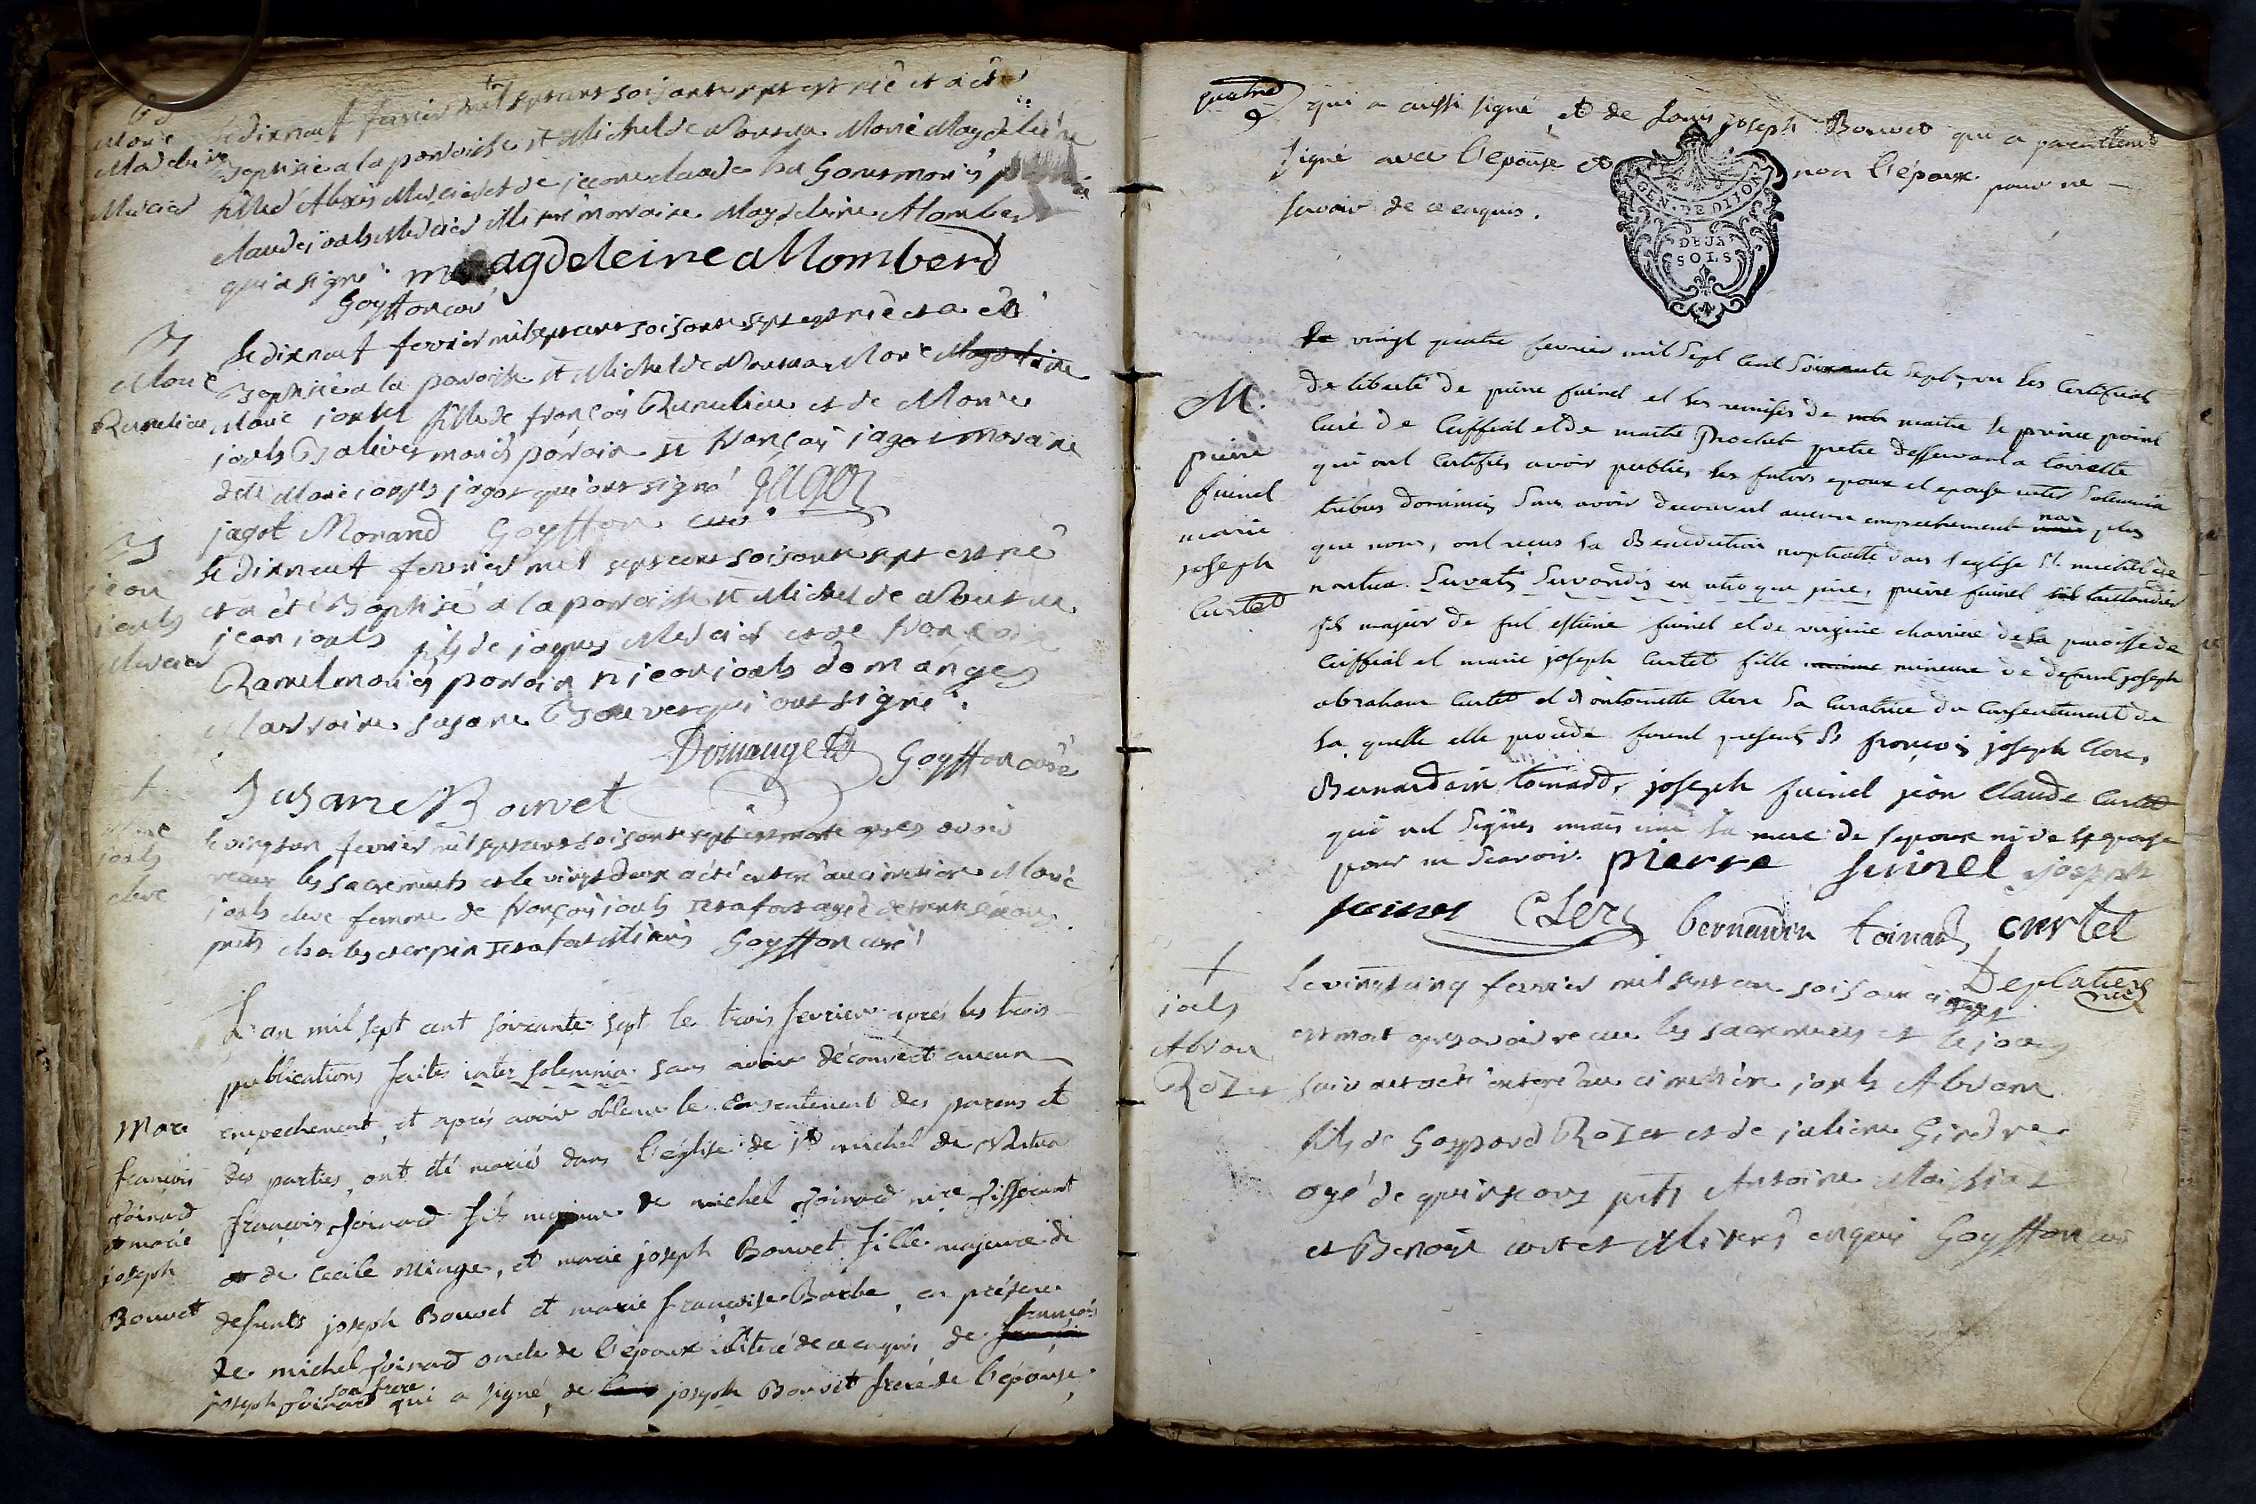 B
Marie
Madeleine
Mercier
Le dixneuf fevrier mil septcent soisante sept est née et a été
Baptisée a la parroisse st Michel de Nantua Marie Magdeleine
fille d'Alexis Mercier et de jeanne claude
claude joseph Mercier Marraine Magdeleine Mombert
qui a signé. magdeleine Momberd
Goyffon curé
B
Marie
Ramelieu
Le dixneuf fevrier mil septcent soisante sept est née et a été
Baptisée a la parroisse st Michel de Nantua Marie Magdeleine
Marie joseph fille de françois Ramelieu et de Marie
joseph Baliver mariés parrain sr françois jagot marraine
dlle Marie joseph jagot qui ont signé JAGOT
jagot Morand Goyffon curé
B
jean
joseph
Mercier
Le dixneuf fevrier mil septcent soisante sept est né
et a été Baptisé a la parroisse st Michel de Nantua
jean joseph fils de jaques Mercier et de françoise
Ramel mariés parrain sr jean joseph domanget
Marraine susane Bouvet qui ont signé.
Domanget Goyffon curé
Susane Bouvet
+
Marie
joseph
cleve
Le vingtun fevrier mil septcent soisante sept est morte apres avoir
receue les sacrements et le vingt deux a été enterée au cimetiere Marie
joseph cleve femme de françois joseph
prets charles crepin Goyffon curé
L'an mil sept cent soixante sept le trois fevrier aprés les trois
publications faites inter solemnia sans avoir découvert aucun
empechement, et aprés avoir obtenu le consentement des parens et
des parties, ont été mariés dans l'église de st michel de Nantua
Mari
françois
Joinard
et marie
joseph
Bouvet
françois Joinard fils majeur de michel Joinard
et de Cecile Minge, et marie joseph Bouvet fille majeure de
defunts joseph Bouvet et marie françoise Barbe, en présence
de michel Joinard oncle de l'époux illiteré de ce enquis, de françois
joseph Joinard son frere qui a signé, de joseph Bouvet frere de l'épouse
quatre
9
qui a aussi signé, et de Louis joseph Bouvet qui a pareillement
signé avec l'epouse et non l'époux pour ne
savoir de ce enquis.
GEN. DE DIJON
DEUX
SOLS
M.
pierre
fuinel
marie
joseph
Curtet
Le vingt quatre fevrier mil Sept Cent Soixante Sept, vu les Certificats
de liberté de pierre fuinel et les remises de maitre le prince
Curé de Cuffial et de maitre Brochet pretre desservant a toirette
qui ont Certifiés avoir publiés les futurs epoux et epouse inter Solemnia
tribus dominicis Sans avoir decouvert aucun empechement non plus
que nous, ont reçus la Benediction nuptialle dans l'eglise St. michel de
nantua. Servatis Servandis in utroque jure, pierre fuinel taillandier
fils majeur de fut estiene fuinel et de virginie charriere de la paroisse de
Cuffial et marie joseph Curtet fille mineure de defunt joseph
abraham Curtet et d'antoinette Clerc Sa Curatrice du Consentement de
la quelle elle procede furent presents Srs françois joseph Clerc,
Bernardin toinard, joseph fuinel jean Claude Curtet
qui ont Signés mais non la mere de l'epoux ni de l'epouse
pour ne Scavoir. pierre fuinel joseph
fuinel CLerc bernardin toinard curtet
Deplatiere
vic
+
joseph
Abram
Rozet
Le vingt cinq fevrier mil sept cent soisante sept
est mort apres avoir receu les sacrements et le jour
suivant a été enteré au cimetiere joseph Abram
fils de Gaspard Rozet et de juliene Girdre
agé de quinze ans prets Antoine Maissiat
et Benoit curtet illiterés enquis Goyffon curé